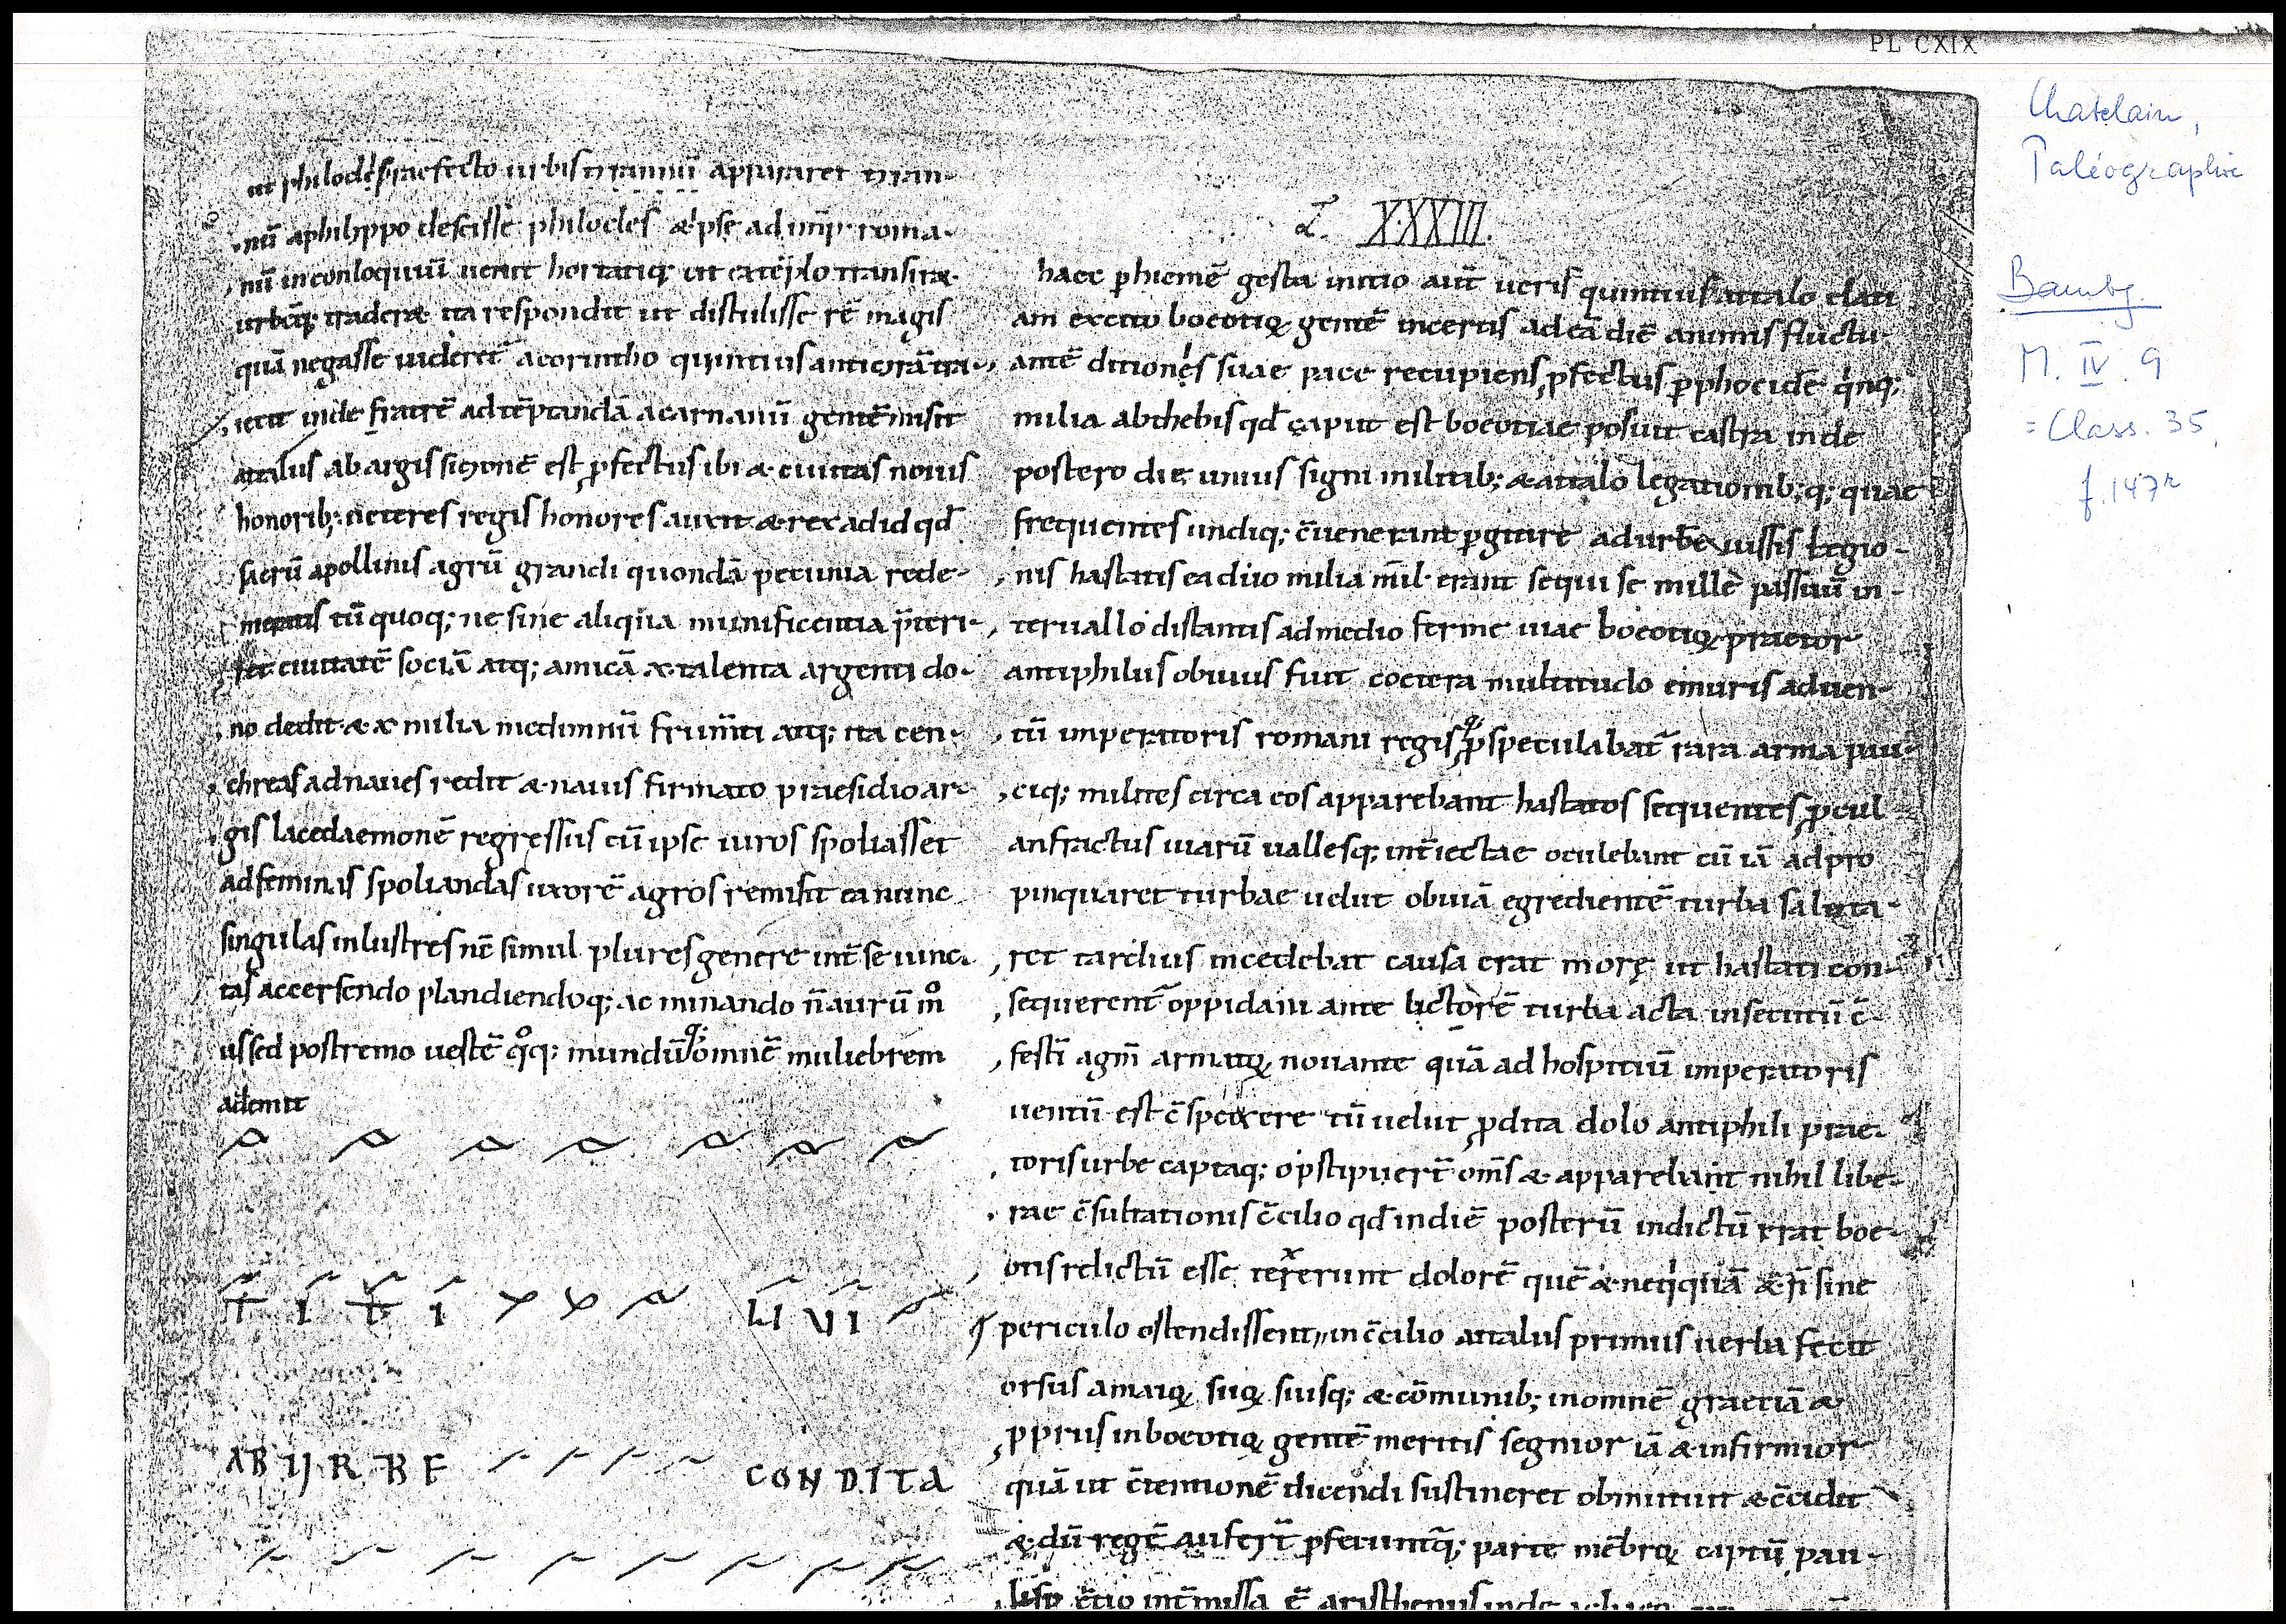 PL CXIX
Chatelain,
Paléographie
Bambg.
M. IV. 9
= Class. 35,
f. 147r
ut philocles praefecto urbis tyrannū appararet tyran-
nū aphilippo descisse philocles & ipse ad imp̄ roma-
nū inconloquiū uenit hortatiq; ut ex tēplo transir&
urbēq; trader& ita respondit ut distulisse rē magis
quā negasse uideret̄ acorintho quintius anticyrā tra-
iecit inde fratrē ad tēptandā acarnanū gentē misit
attalus ab argis sicyonē est p̱fectus ibi & ciuitas nouis
honorib; ueteres regis honores auxit & rex ad id qd̄
sacrū apollinis agrū grandi quondā pecunia rede-
merat is tū quoq; ne sine aliqua munificentia p̄teri-
ret ciuitatē sociā atq; amicā x talenta argenti do-
no dedit & x milia medimnū frum̄ti atq; ita cen-
chreas ad naues redit & nauis firmato praesidio ar-
gis lacedaemonē regressus cū ipse uiros spoliasset
ad feminas spoliandas uxorē agros remisit ea nunc
singulas inlustres nc̄ simul plures genere int̄ se iunc-
tas accersendo plandiendoq; ac minando n̄ aurū m̊
us sed postremo uestē q̊q; mundūq; omnē muliebrem
ademit
T̄ Ī T̄ Ī LI VI
AB URBE CONDITA
L. XXXIII.
haec p̱ hiemē gesta initio aut̄ ueris quintius attalo elati
am excito boeotiꝝ gentē incertis ad eā diē animis fluctu-
antē ditiones suae face recupiens p̱fectus p̱ phocide qinq;
milia ab thebis qd̄ caput est boeotiae posuit castra inde
postero die unius signi militib; & attalo legationib; q; quae
frequentes undiq; c̄uenerant p̱gere ad urbē iussis legio-
nis hastatis ea duo milia mil̄ erant sequi se mille passuū in-
teruallo distantis ad medio ferme uiae boeotiꝝ praetor
antiphilus obuius fuit coetera multitudo e muris aduen-
tū imperatoris romani regisq; p̱speculabat̄ rara arma pau-
ciq; milites circa eos apparebant hastatos sequentes p̱cul
anfractus uiarū uallesq; int̄iectae oculebant cū iā ad pro
pinquaret turbae uelut obuiā egredientē turba saluta-
ret tardius incedebat causa erat morę ut hastati con-
sequerent̄ oppidani ante lictorē turba acta insecutū c̄-
festī agm̄ armatoꝝ nouante quā ad hospitiū imperatoris
uentū est c̄spexere tū uelut p̱dita dolo antiphili prae-
toris urbe captaq; opstipuert̄ om̄s & apparebant nihil libe-
rae c̄sultationis c̄cilio qd̄ in diē posterū indictū erat boe-
otis relictū esse texerunt dolorē quē & neq;quā & n̄ sine
periculo ostendissent in c̄cilio attalus primus uerba fecit
orsus a maioꝝ suoꝝ suisq; & cōmunib; in omnē graeciā &
p̱priis in boeotiꝝ gentē meritis segnior iā & infirmior
quā ut c̄tentionē dicendi sustineret obmutuit & c̄cidit
& dū regē aufert̄ p̱feruntq; parte mēbroꝝ captū pau-